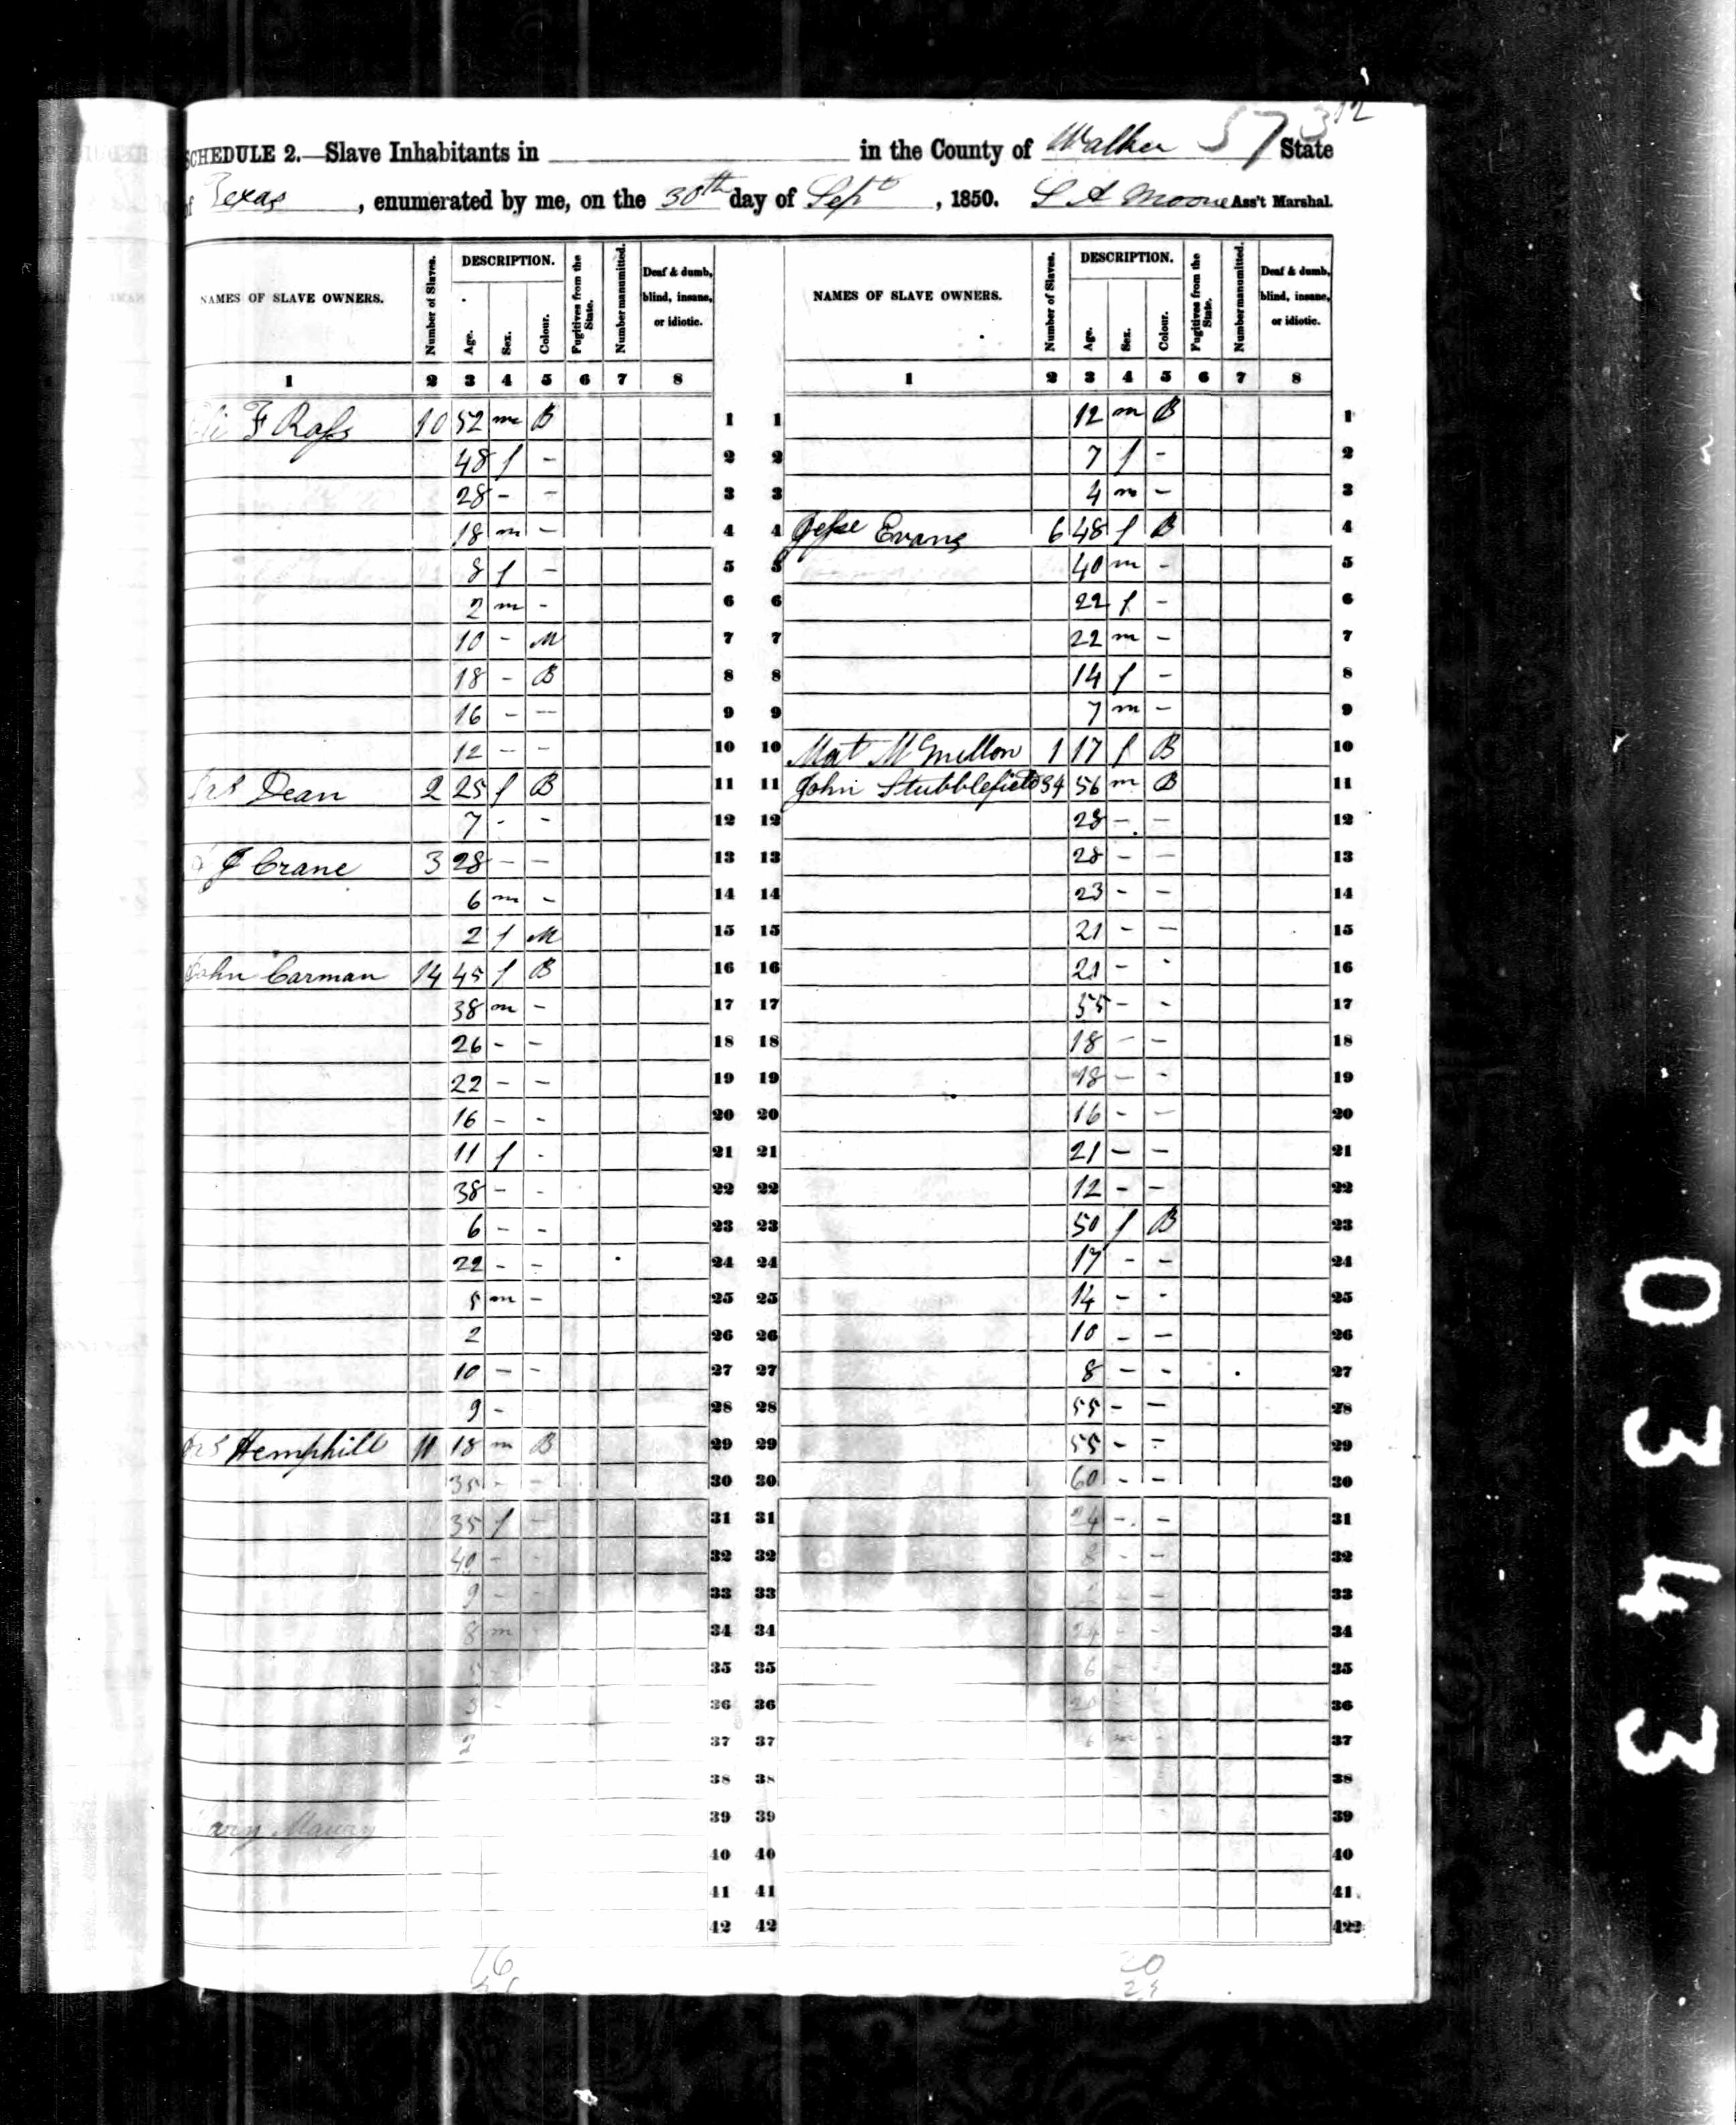 312
57
SCHEDULE 2.—Slave Inhabitants in in the County of Walker State
of Texas, enumerated by me, on the 30th day of Sept, 1850. S A Moore Ass't Marshal.
NAMES OF SLAVE OWNERS. Number of Slaves. DESCRIPTION. Age. Sex. Colour. Fugitives from the State. Number manumitted. Deaf & dumb, blind, insane, or idiotic. NAMES OF SLAVE OWNERS. Number of Slaves. DESCRIPTION. Age. Sex. Colour. Fugitives from the State. Number manumitted. Deaf & dumb, blind, insane, or idiotic.
1 2 3 4 5 6 7 8 1 2 3 4 5 6 7 8
F Ross 10 52 m B 1 1 12 m B 1
48 f - 2 2 7 f - 2
28 - - 3 3 4 m - 3
18 m - 4 4 Jesse Evans 6 48 f B 4
8 f - 5 5 40 m - 5
2 m - 6 6 22 f - 6
10 - M 7 7 22 m - 7
18 - B 8 8 14 f - 8
16 - - 9 9 7 m - 9
12 - - 10 10 Mat McMillon 1 17 f B 10
Mrs Dean 2 25 f B 11 11 John Stubblefield 34 56 m B 11
7 - - 12 12 28 - - 12
J Crane 3 28 - - 13 13 28 - - 13
6 m - 14 14 23 - - 14
2 f M 15 15 21 - - 15
John Carman 14 45 f B 16 16 21 - - 16
38 m - 17 17 55 - - 17
26 - - 18 18 18 - - 18
22 - - 19 19 18 - - 19
16 - - 20 20 16 - - 20
11 f - 21 21 21 - - 21
38 - - 22 22 12 - - 22
6 - - 23 23 50 f B 23
22 - - 24 24 17 - - 24
5 m - 25 25 14 - - 25
2 26 26 10 - - 26
10 - - 27 27 8 - - 27
9 - 28 28 55 - - 28
Mrs Hemphill 11 18 m B 29 29 55 - - 29
35 - - 30 30 60 - - 30
35 f - 31 31 24 - - 31
40 - - 32 32 8 - - 32
9 - - 33 33 - - 33
8 m 34 34 24 - - 34
35 35 6 - - 35
3 - 36 36 36
2 37 37 6 m - 37
38 38 38
39 39 39
40 40 40
41 41 41
42 42 42
16 20
0343